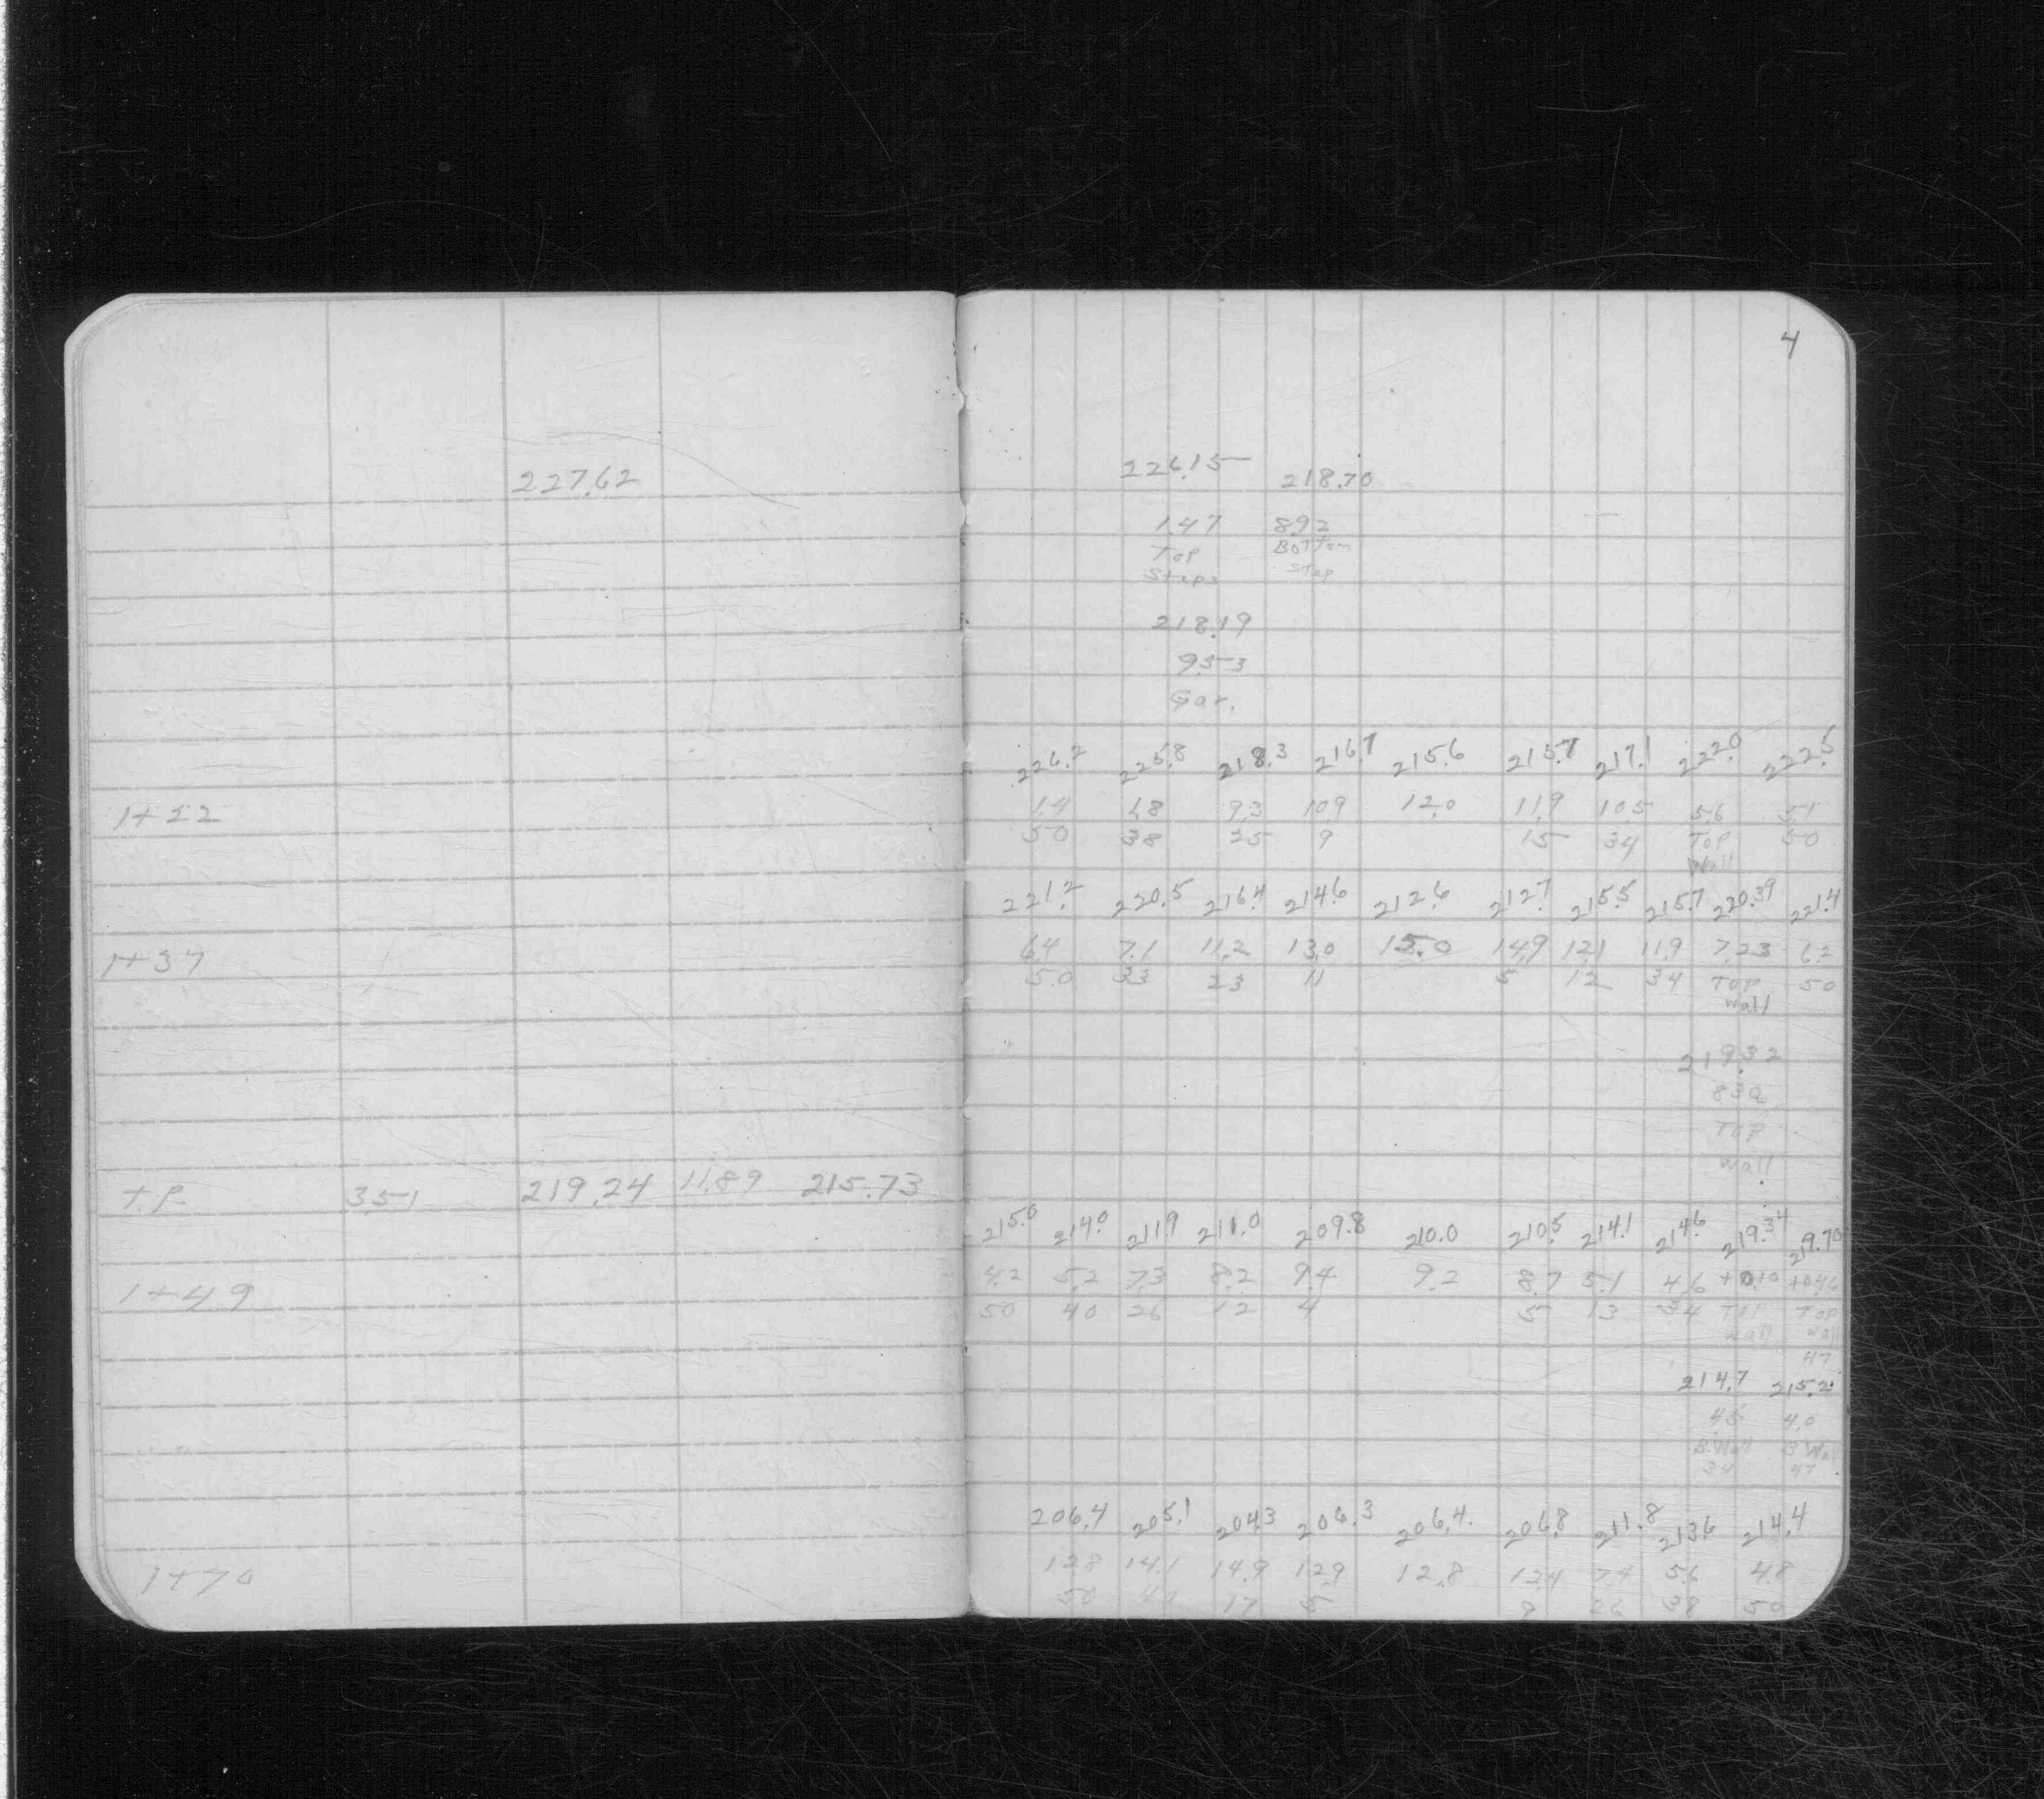 4
227.62
226.15 218.70
1.47 8.92
Top Bottom
Steps Step
218.19
9.53
Gar.
226.2 225.8 218.3 216.7 215.6 215.7 217.1 222.0 222.5
1+22 1.4 1.8 9.3 10.9 12.0 11.9 10.5 5.6 5.1
50 38 25 9 15 34 Top 50
Wall
221.2 220.5 216.4 214.6 212.6 212.7 215.5 215.7 220.39 221.4
1+37 6.4 7.1 11.2 13.0 15.0 14.9 12.1 11.9 7.23 6.2
50 33 23 11 5 12 34 Top 50
Wall
219.32
8.30
Top
Wall
T.P. 3.51 219.24 11.89 215.73
215.0 214.0 211.9 211.0 209.8 210.0 210.5 214.1 214.6 219.34 219.70
1+49 4.2 5.2 7.3 8.2 9.4 9.2 8.7 5.1 4.6 +0.10 +0.46
50 40 26 12 4 5 13 34 Top Top
Wall Wall
47
214.7 215.2
4.5 4.0
B.Wall B.Wall
34 47
206.4 205.1 204.3 206.3 206.4 206.8 211.8 213.6 214.4
1+70 12.8 14.1 14.9 12.9 12.8 12.4 7.4 5.6 4.8
50 42 17 5 9 26 38 50